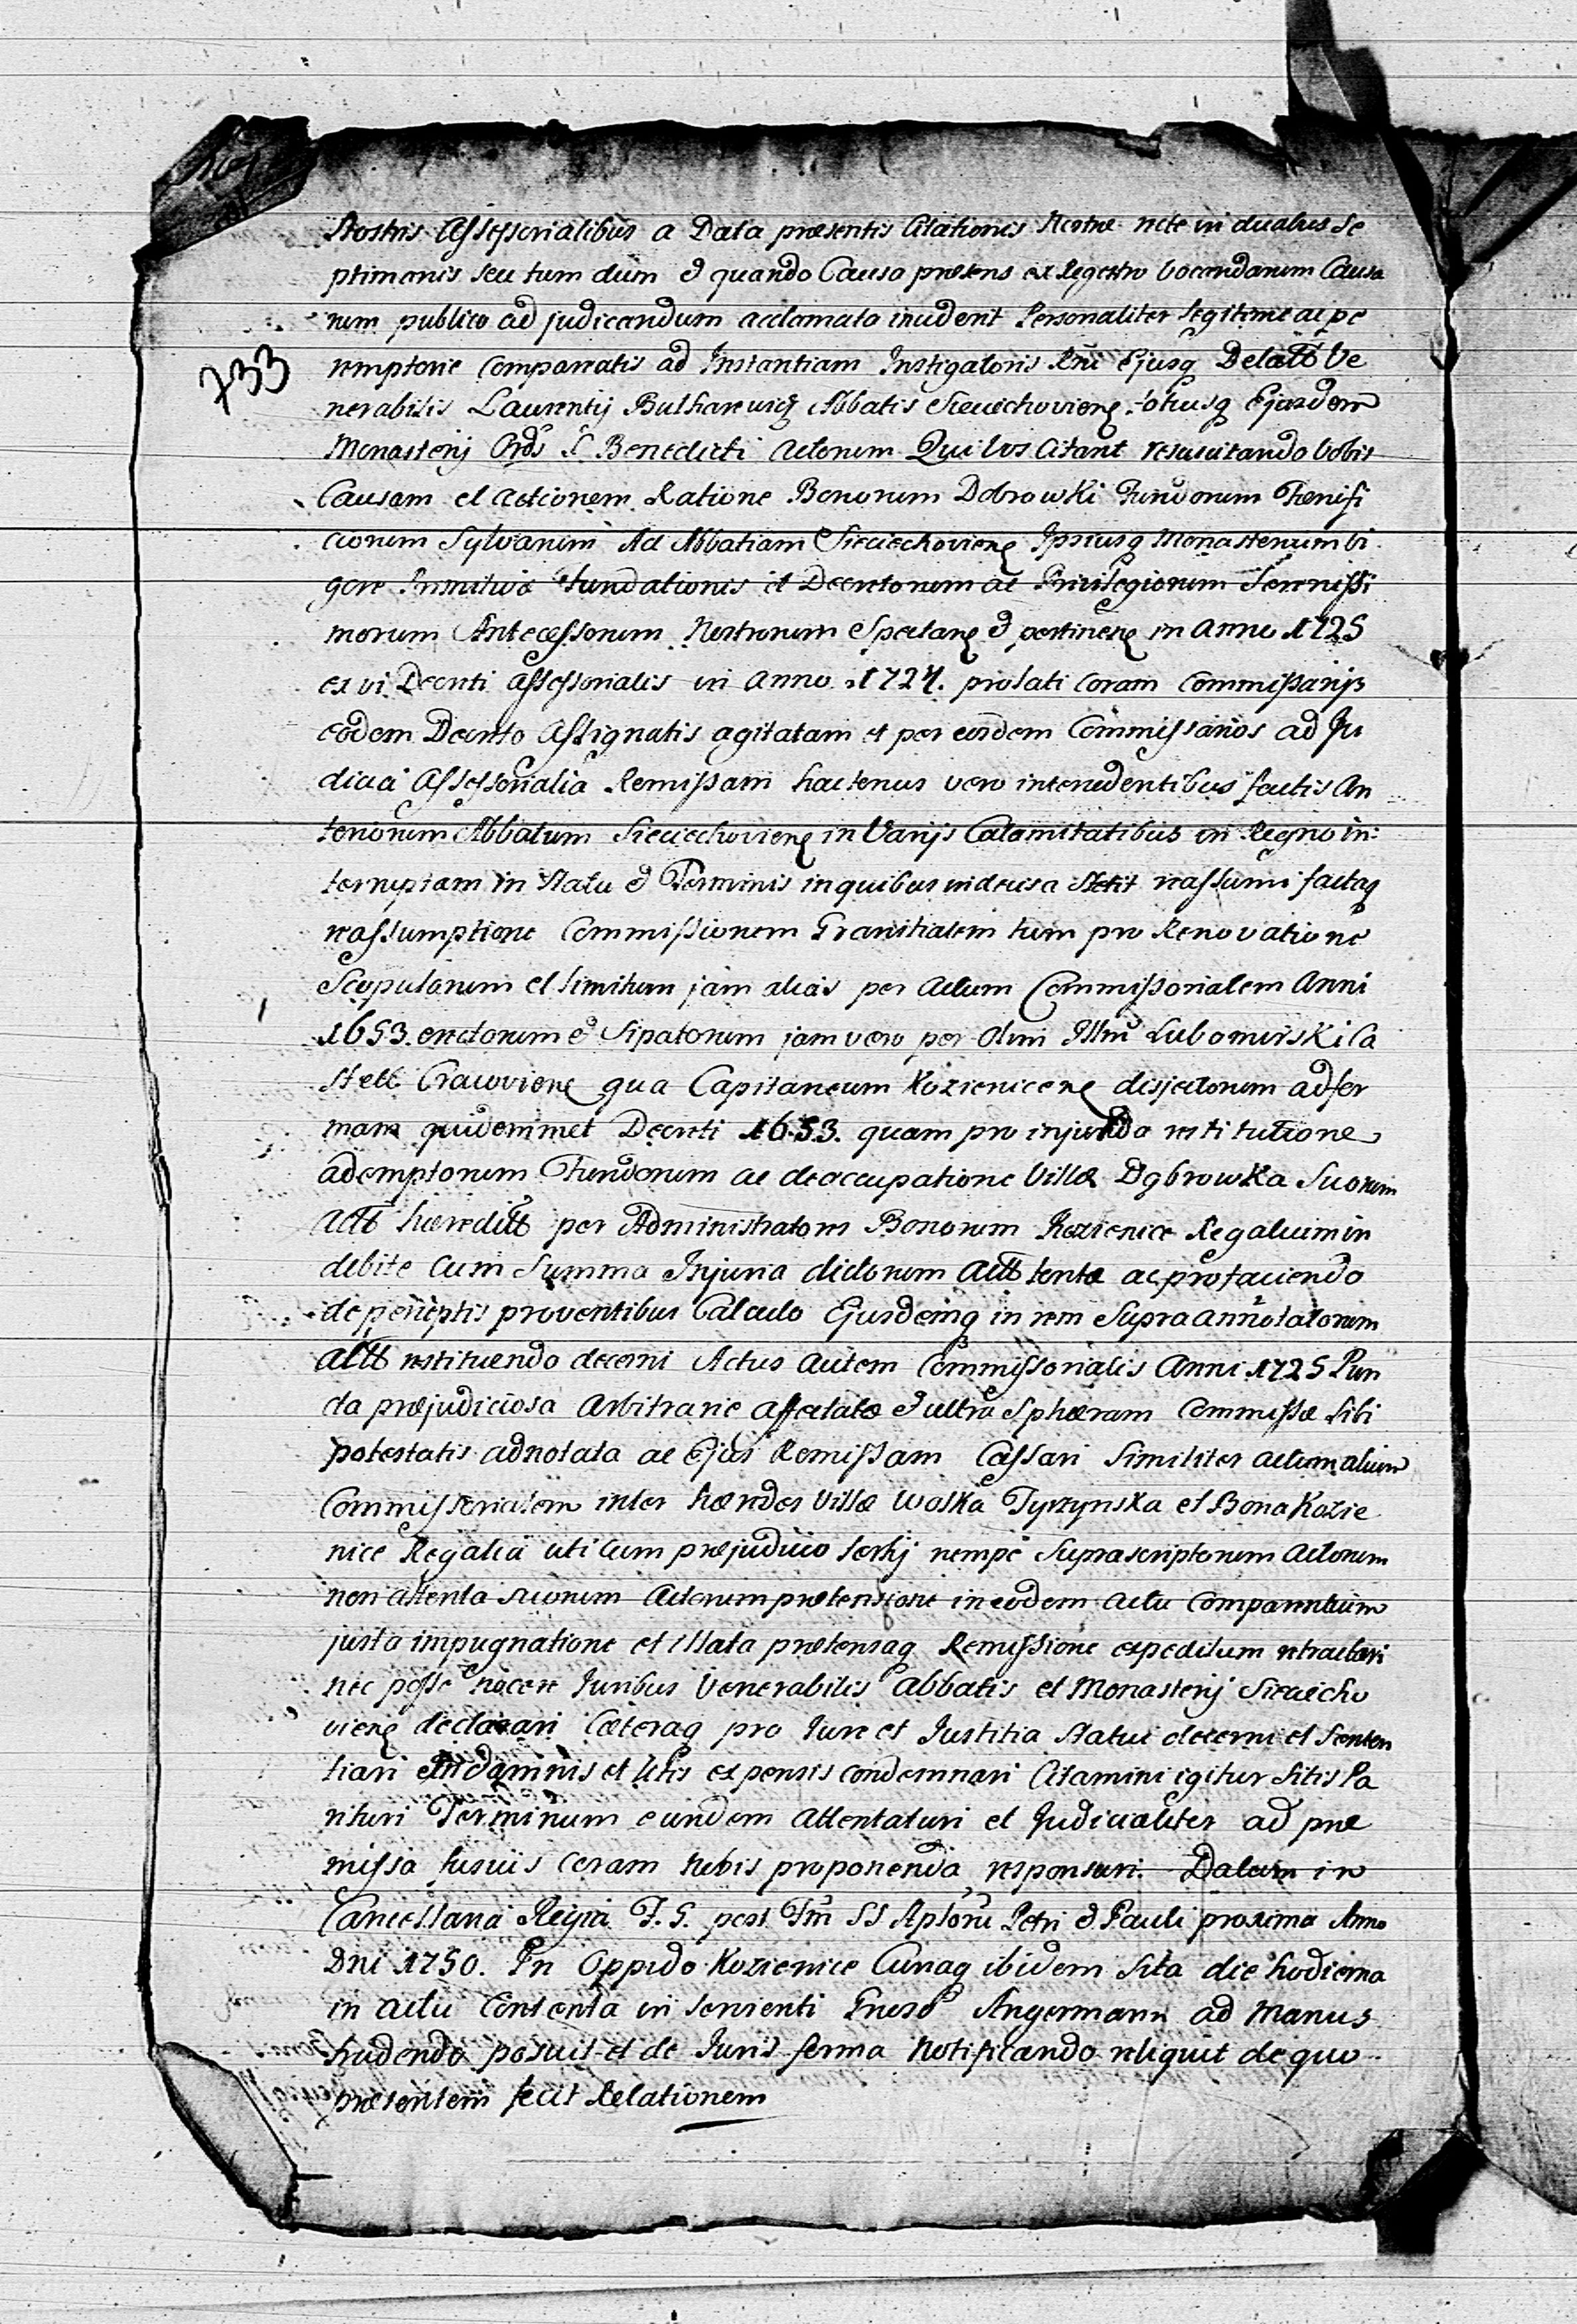 Nostris Assessorialibus a Data præsentis Citationis Nostræ recte in duabus Se
ptimanis seu tum dum & quando Causa præsens ex Regestro vocandarum Causa
rum publico ad judicandum acclamata inciderit Personaliter legitime ac pe
remptorie compareatis ad Instantiam Instigatoris Rni Ejusq Delatt Ve
nerabilis Laurentij Bulharewicz Abbatis Sieciechoviens totiusq Ejusdem
Monasterij Ords S. Benedicti Actorum Qui Vos Citant resuscitando Vobis
Causam et actionem Ratione Bonorum Dobrowki Fundorum Fœnifi
ciorum Sylvarum Ad Abbatiam Sieciechoviens Ipsiusq Monasterium vi
gore Primitivæ Fundationis et Decretorum ac Privilegiorum Serenissi
morum Antecessorum Nostrorum Spectan & pertinen in Anno 1725
ex vi Decreti Assessorialis in Anno 1724. prolati coram Commissarijs
eodem Decreto Assignatis agitatam et per eosdem Commissarios ad Ju
dicia Assessorialia Remissam hactenus vero intercedentibus factis An
teriorum Abbatum Sieciechoviens in Varijs Calamitatibus in Regno in:
terruptam in Statu & Terminis in quibus indecisa Stetit reassumi factaq
reassumptione Commissionem Granitialem tum pro Renovatione
Scopulorum et limitum jam alias per Actum Commissorialem Anni
1653. erectorum & Sipatorum jam vero per Olim Illm Lubomirski Ca
stell Cracoviens qua Capitaneum Kozienicens disjectorum ad for
mam quidemmet Decreti 1653. quam pro injungenda restitutione
ademptorum Fundorum ac deoccupatione Villæ Dąbrowka Suorum
Actt hæreditt per Administratores Bonorum Kozienice Regalium in
debite Cum Summa Injuria dictorum Actt tentæ ac pro faciendo
de perceptis proventibus Calculo Ejusdemq in rem Supra annotatorum
Actt restituendo decerni Actus autem Commissorialis Anni 1725 Pun
cta præjudiciosa Arbitrarie affectata & ultra Sphæram Commissæ Sibi
potestatis adnotata ac Ejus Remissam Cassari Similiter actum alium
Commissorialem inter hæredes Villæ Wolka Tyrzynska et Bona Kozie
nice Regalia uti Cum præjudicio tertij nempe Suprascriptorum Actorum
non attenta suorum Actorum prætensione in eodem actu Comparentium
justa impugnatione et illata prætensaq Remissione expeditum retractari
nec posse nocere Juribus Venerabilis Abbatis et Monasterij Sieciecho
viens declarari Cæteraq pro Jure et Justitia Statui decerni et Senten
tiari In damnis et litis expensis condemnari Citamini igitur Sitis Pa
rituri Terminum eundem Attentaturi et Judicialiter ad præ
missa fusius Coram Nobis proponenda responsuri. Datum in
Cancellaria Regia F. S. post Fm SS Aplorū Petri & Pauli proxima Anno
Dni 1750. In Oppido Kozienice Curiaq ibidem Sita die hodierna
in actu Contenta in servienti Gneso Angermann ad Manus
tradendo posuit et de Juris forma Notificando reliquit de quo
præsentem fecit Relationem
733